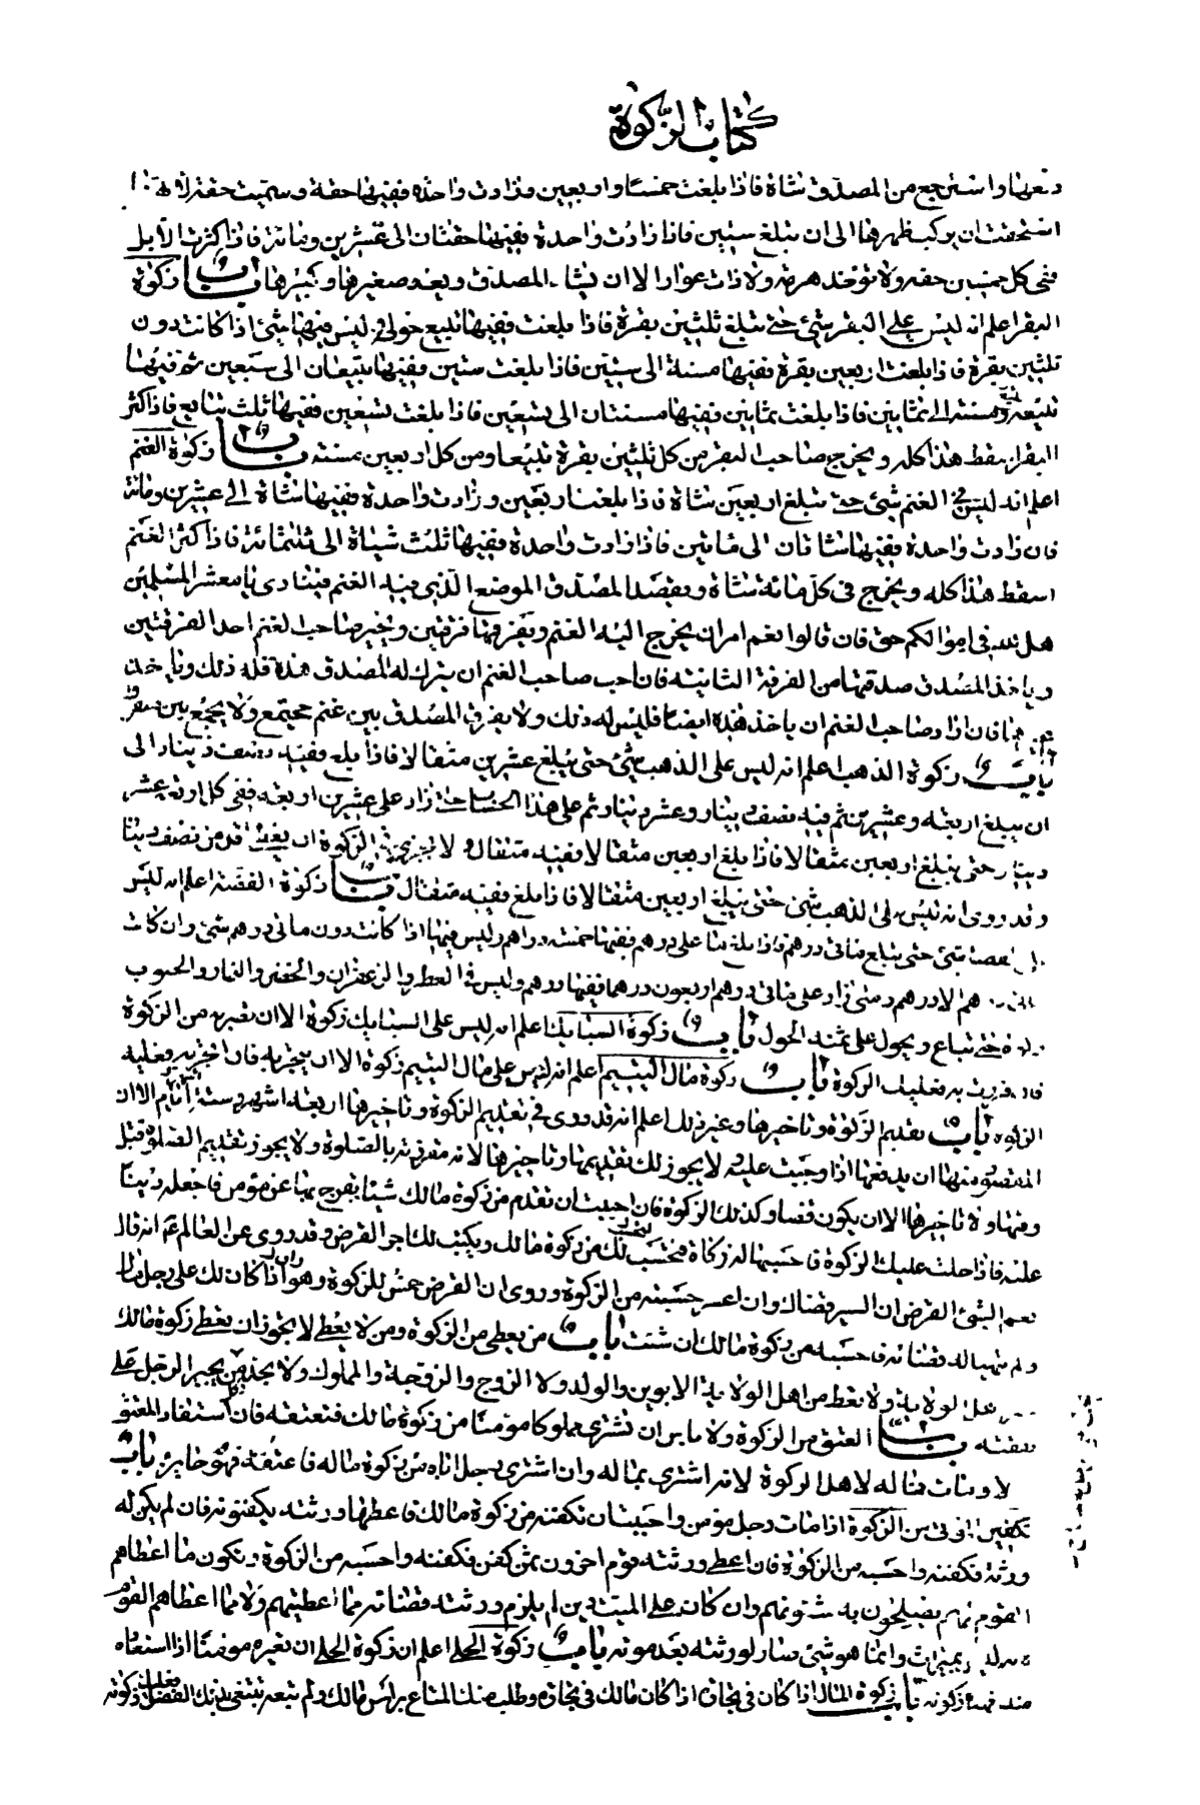 كتاب الزكوة
دفعها واسترجع من المصدق شاة فاذا بلغت خمسا واربعين وزادت واحدة ففيها حقة وسميت حقة لانها
استحقت ان يركب ظهرها الى ان تبلغ ستين فاذا زادت واحدة ففيها حقتان الى عشرين ومائة فاذا كثرت الابل
ففى كل خمسين حقه ولا تؤخذ هرمة ولا ذات عوار الا ان يشاء المصدق ويعد صغيرها وكبيرها باب زكوة
البقر اعلم انه ليس على البقر شئ حتى تبلغ ثلثين بقرة فاذا بلغت ففيها تبيع حولى وليس فيها شئ اذا كانت دون
ثلثين بقرة فاذا بلغت اربعين بقرة ففيها مسنة الى ستين فاذا بلغت ستين ففيها تبيعان الى سبعين ثم فيها
تبيعة ومسنة الى ثمانين فاذا بلغت ثمانين ففيها مسنتان الى تسعين فاذا بلغت تسعين ففيها ثلث تبايع فاذا كثر
البقر اسقط هذا كله ويخرج صاحب البقر من كل ثلثين بقرة تبيعا ومن كل اربعين مسنة باب زكوة الغنم
اعلم انه ليس على الغنم شئ حتى تبلغ اربعين شاة فاذا بلغت اربعين وزادت واحدة ففيها شاة الى عشرين ومائة
فان زادت واحدة ففيها شاتان الى مأتين فاذا زادت واحدة ففيها ثلث شياة الى ثلثمائة فاذا كثر الغنم
اسقط هذا كله ويخرج فى كل مائة شاة ويقصد المصدق الموضع الذى فيه الغنم فينادى يا معشر المسلمين
هل لله فى اموالكم حق فان قالوا نعم امر ان يخرج اليه الغنم ويفرقها فرقتين ويخير صاحب الغنم احد الفرقتين
وياخذ المصدق صدقتها من الفرقة الثانية فان احب صاحب الغنم ان يترك له المصدق هذه فله ذلك وياخذ
غيرها فان اراد صاحب الغنم ان ياخذ هذه ايضا فليس له ذلك ولا يفرق المصدق بين غنم مجتمع ولا يجمع بين متفرق
باب زكوة الذهب اعلم انه ليس على الذهب شئ حتى يبلغ عشرين مثقالا فاذا بلغ ففيه نصف دينار الى
ان يبلغ اربعة وعشرين ثم فيه نصف دينار وعشر دينار ثم على هذا الحساب متى زاد على عشرين اربعة ففى كل اربعة عشر
دينار حتى يبلغ اربعين مثقالا فاذا بلغ اربعين مثقالا ففيه مثقال ولا يجزى فى الزكوة ان يعطى اقل من نصف دينار
وقد روى انه ليس على الذهب شئ حتى يبلغ اربعين مثقالا فاذا بلغ ففيه مثقال باب زكوة الفضة اعلم انه ليس
على الفضة شئ حتى يبلغ مأتى درهم فاذا بلغ مأتى درهم ففيها خمسة دراهم وليس فيها اذا كانت دون مأتى درهم شئ وان كانت
الا درهم ومتى زاد على مأتى درهم اربعون درهما ففيها درهم وليس فى العطر والزعفران والخضر والثمار والحبوب
زكوة حتى تباع ويحول على ثمنه الحول باب زكوة السبايك اعلم انه ليس على السبايك زكوة الا ان تفر به من الزكوة
فان فررت به فعليك الزكوة باب زكوة مال اليتيم اعلم انه ليس على مال اليتيم زكوة الا ان يتجر به فان اتجر به فعليه
الزكوة باب تقديم الزكوة وتاخيرها وغير ذلك اعلم انه قد روى فى تقديم الزكوة وتاخيرها اربعة اشهر وستة اشهر الا ان
المقصود منها ان يدفعها اذا وجبت عليه ولا يجوز لك تقديمها وتاخيرها لانه مقرونة بالصلوة ولا يجوز تقديم الصلوة قبل
وقتها ولا تاخيرها الا ان يكون قضاء وكذلك الزكوة فان احببت ان تقدم من زكوة مالك شيئا تفرج بها عن مؤمن فاجعله دينا
عليه فاذا حلت عليك الزكوة فاحسبها له زكاة فتحسب لك من زكوة مالك ويكتب لك اجر القرض وقد روى عن العالم ع انه قال
نعم الشئ القرض ان ايسر قضاك وان اعسر حسبته من الزكوة وروى ان القرض حمى للزكوة وهو ان اذا كان لك على رجل مال
ولم يتهيا له قضائه فاحسبه من زكوة مالك ان شئت باب من يعطى من الزكوة ومن لا يعطى لا يجوز ان يعطى زكوة مالك
اهل الولاية ولا يعط من اهل الولاية الابوين والولد ولا الزوج والزوجة والمملوك ولا يجبر الرجل على
نفقته باب العتق من الزكوة ولا باس ان تشترى مملوكا مؤمنا من زكوة مالك فتعتقه فان استفاد المعتق
مالا ومات فماله لاهل الزكوة لانه اشترى بماله وان اشترى رجل اباه من زكوة ماله فاعتقه فهو جايز باب
تكفين الموتى من الزكوة اذا مات رجل مؤمن واحببت ان تكفنه من زكوة مالك فاعطها ورثته يكفنونه فان لم يكن له
ورثة فكفنه واحسبه من الزكوة فان اعطى ورثته قوم اخرون ثمن كفن فكفنه واحسبه من الزكوة ويكون ما اعطاهم
القوم لهم يصلحون به شئونهم وان كان على الميت دين لم يلزم ورثته قضائه مما اعطيتهم ولا مما اعطاهم القوم
لانه ليس بميراث وانما هو شئ صار لورثته بعد موته باب زكوة الحلى اعلم ان زكوة الحلى ان تعيره مؤمنا اذا استعاره
منك فهذه زكوته باب زكوة المال اذا كان فى تجارة اذا كان مالك فى تجارة وطلب منك المتاع براس مالك ولم تبعه تبتغى بذلك الفضل فعليك زكوته